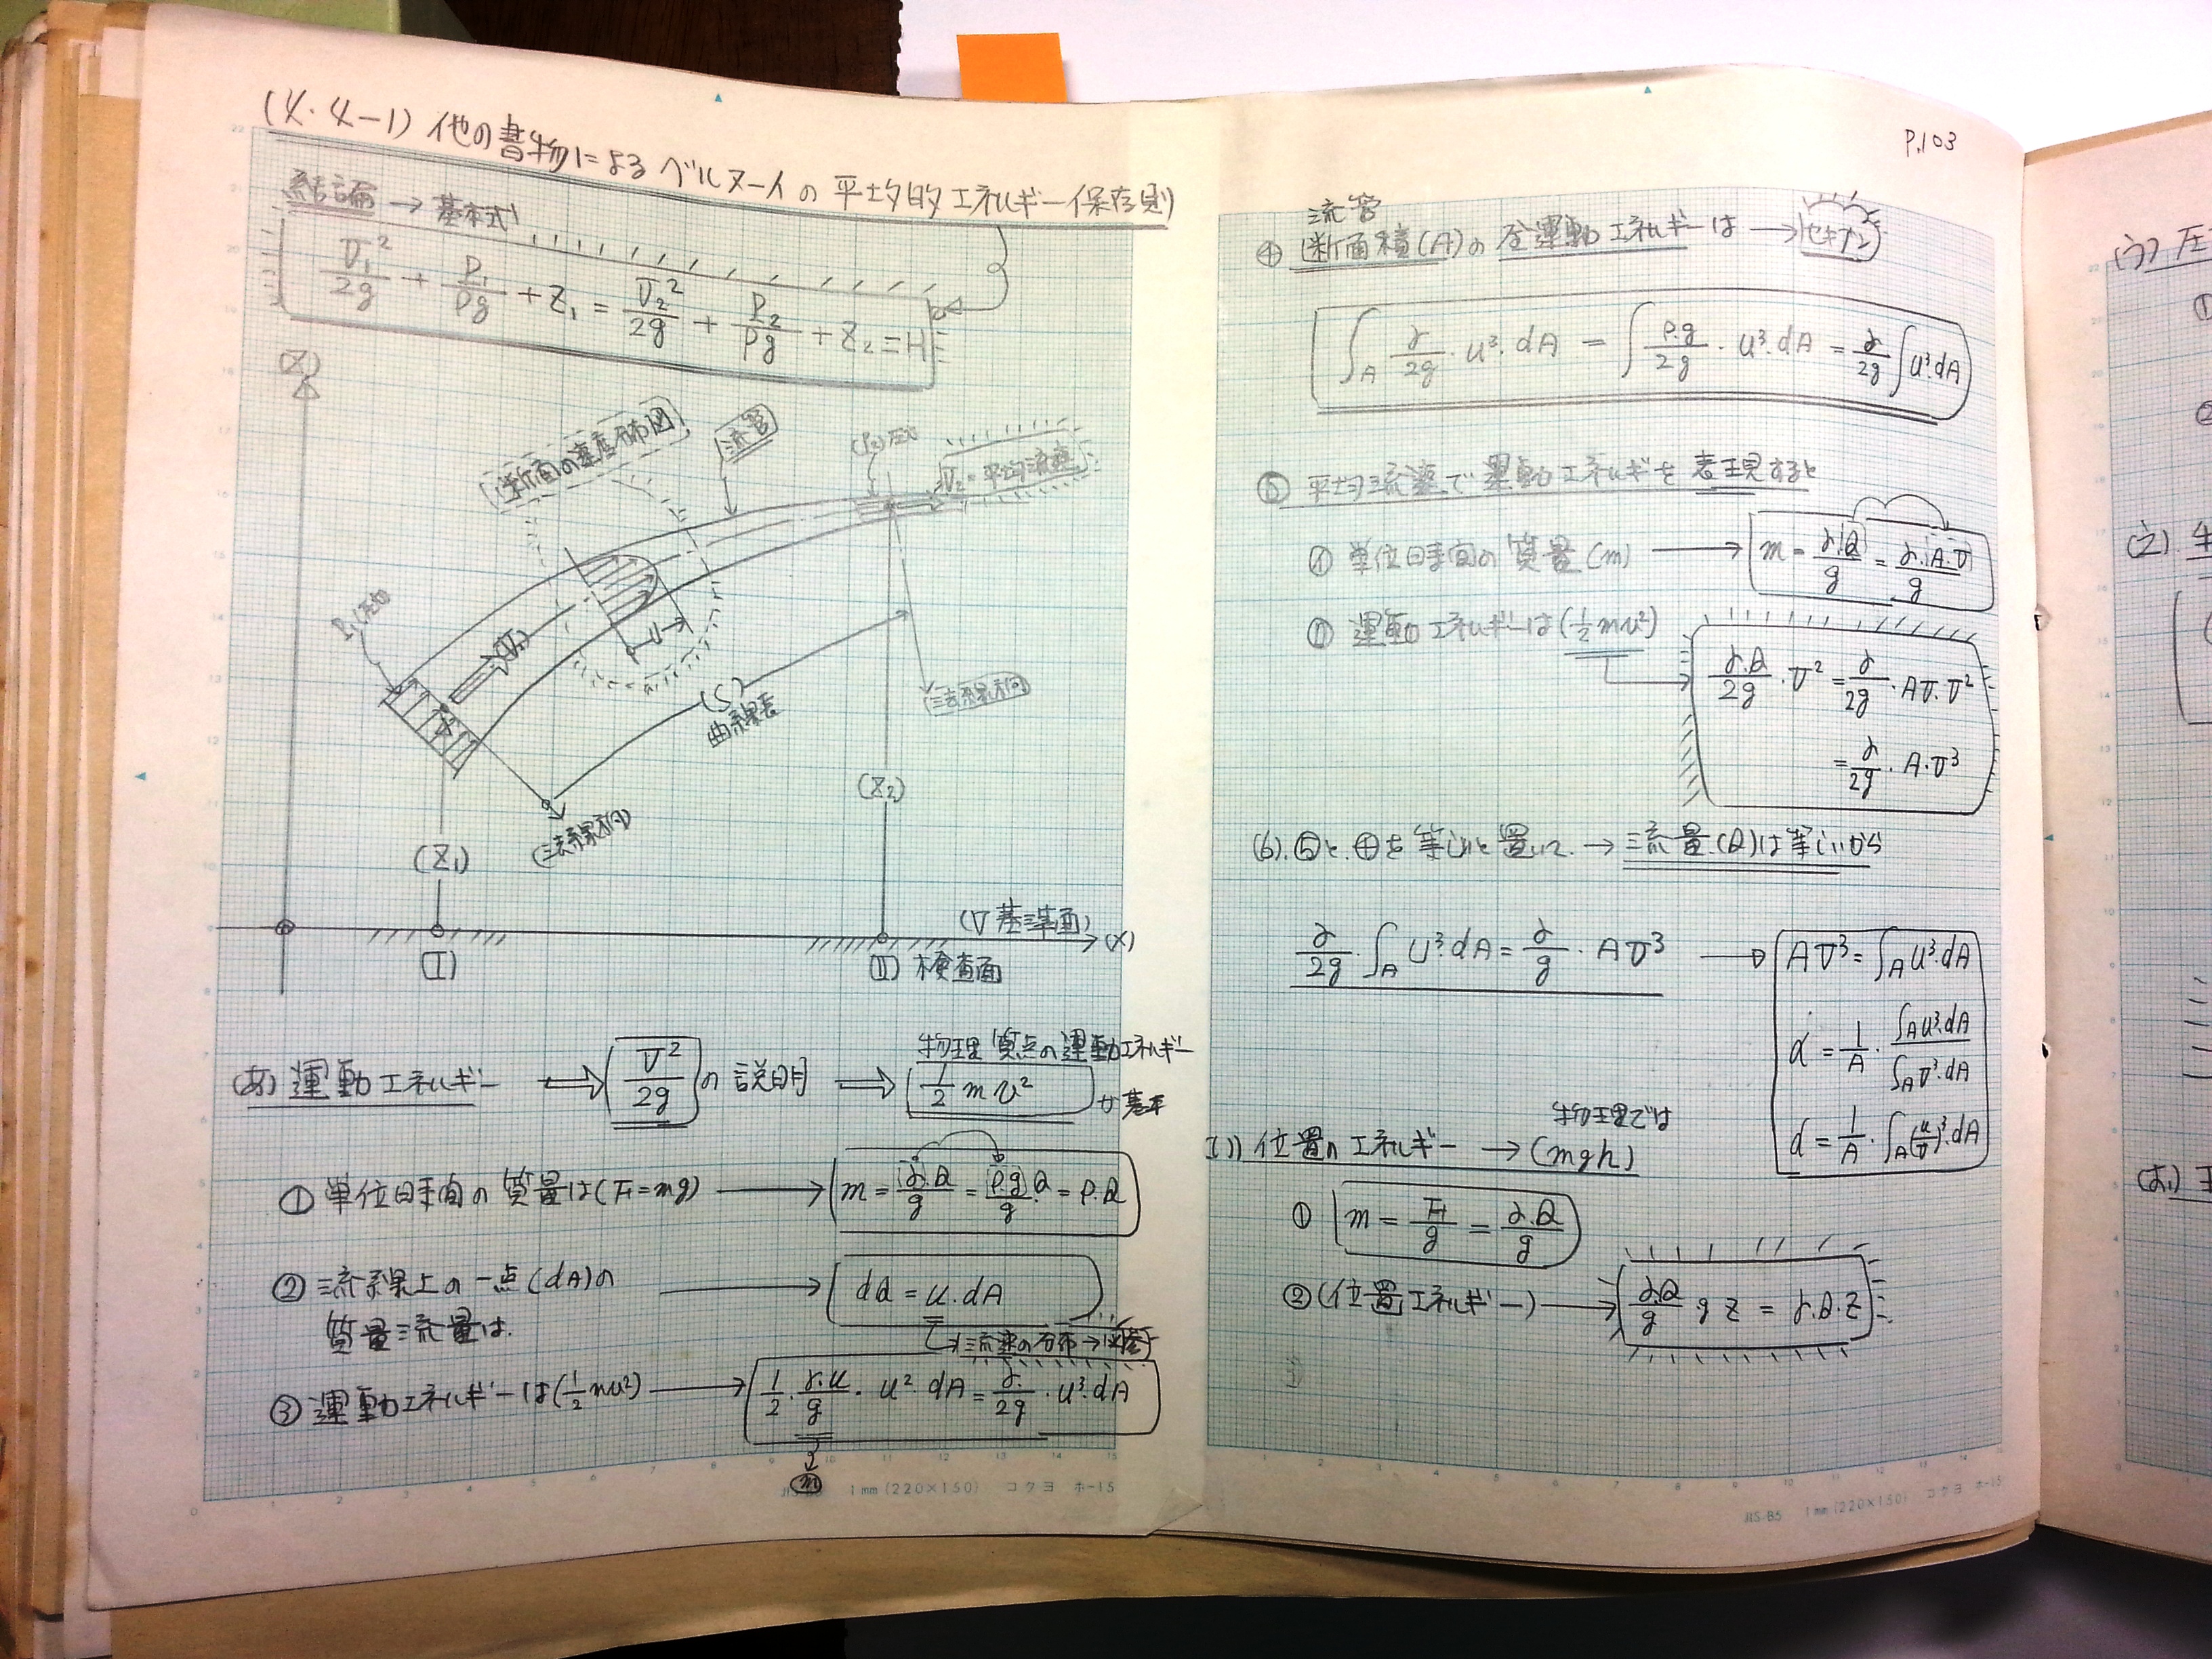 (4・4-1) 他の書物によるベルヌーイの平均的エネルギー保存則
結論 → 基本式
V₁²/2g + P₁/ρg + Z₁ = V₂²/2g + P₂/ρg + Z₂ = H
(Z)
(断面の速度分布図)
流管
(P₂)圧力
V₂=平均流速
P₁圧力
(V₁)
u
(S)
曲線長
法線方向
(法線方向)
(Z₁)
(Z₂)
(▽基準面)
(X)
(I)
(II) 検査面
(あ) 運動エネルギー ⇒ V²/2g の説明 ⇒ 物理 質点の運動エネルギー 1/2 mv² が基本
① 単位時間の質量は(F=mg) → m = γ.Q/g = ρ.g.Q/g = ρ.Q
② 流線上の一点(dA)の → dQ = u.dA
質量流量は.
流速の分布→
③ 運動エネルギーは(1/2 mu²) → 1/2・γ.u/g・u²・dA = γ/2g・u³.dA
m
JIS-B5 1mm(220×150) コクヨ ホ-15
P.103
流管
④ 断面積(A)の全運動エネルギーは → セキブン
∫A γ/2g・u³.dA = ∫ρ.g/2g・u³.dA = γ/2g ∫u³.dA
⑤ 平均流速で運動エネルギを表現すると
㋑ 単位時間の質量(m) → m = γ.Q/g = γ.A.V/g
㋺ 運動エネルギーは(1/2 mv²)
γ.Q/2g・V² = γ/2g・AV.V²
= γ/2g・A.V³
(6). ⑤と.④を等しいと置いて. → 流量.(Q)は等しいから
γ/2g・∫A u³.dA = γ/g・AV³ → AV³ = ∫A u³.dA
α = 1/A・∫A u³.dA/∫A V³.dA
α = 1/A・∫A(u/V)³.dA
物理では
い) 位置のエネルギー → (mgh)
① m = F/g = γ.Q/g
② (位置エネルギー) → γ.Q/g g Z = γ.Q.Z
JIS-B5 1mm(220×150) コクヨ ホ-15
(う) 圧
①
②